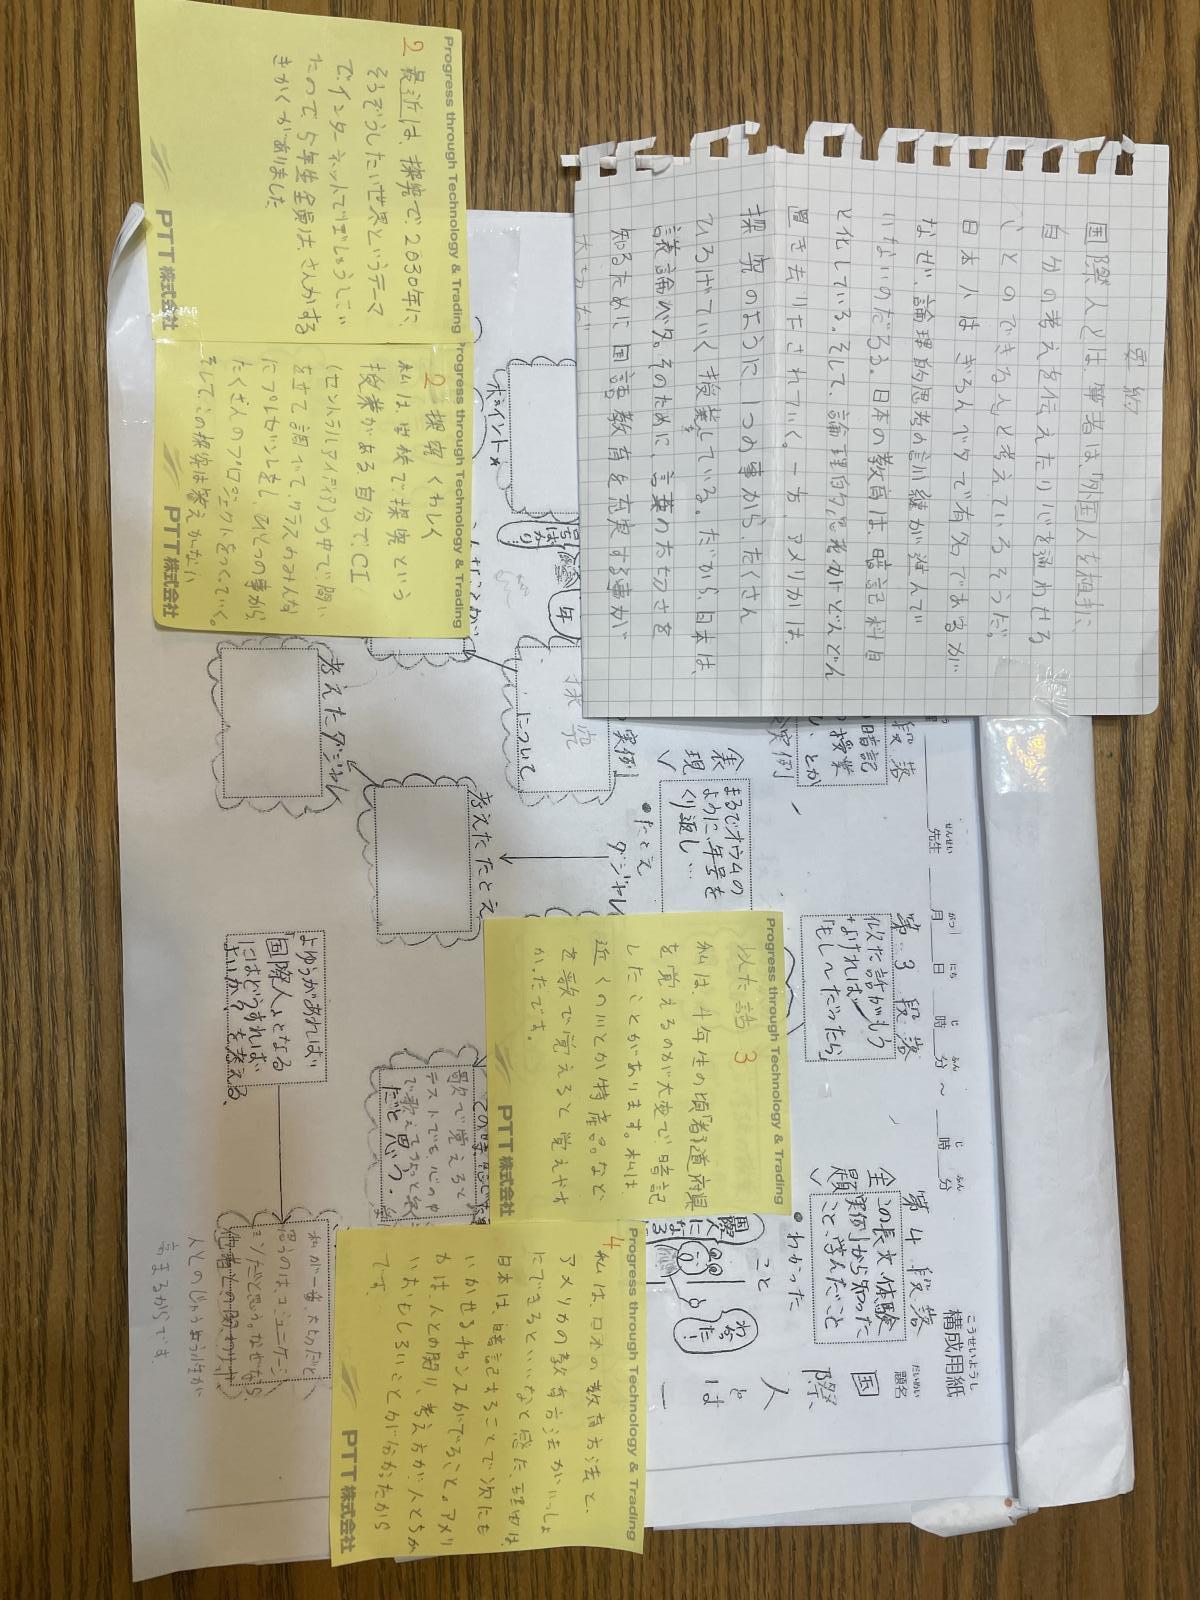 要約
国際人とは、筆者は「外国人を相手に
自分の考えを伝えたり心を通わせる
ことのできる人」と考えているそうだ。
日本人はぎろんベタで有名であるが
なぜ、論理的思考の訓練が進んで
いないのだろう。日本の教育は、暗記科目
と化している。そして、論理的思考がどんどん
置き去りにされていく。一方、アメリカは、
探究のように1つの事から、たくさん
ひろげていく授業をしている。だから日本は
議論ベタ。そのために、言葉の大切さを
知るために国語教育を充実する事が
大切だ
Progress through Technology & Trading
2 最近は、探究で2030年に
そうぞうしたい世界というテーマ
で、インターネットでぼしゅうしてい
たので5年生全員は、さんかする
きかくがありました
PTT株式会社
Progress through Technology & Trading
2 探究 くわしく
私は学校で探究という
授業がある自分でCI
(セントラルアイディア)の中で問い
を立て調べて、クラスのみんな
にプレゼンをし、1つの事から
たくさんのプロジェクトをつくっていく。
そして、この探究は答えがない
PTT株式会社
Progress through Technology & Trading
似た話 3
私は、4年生の頃「都道府県
を覚えるのが大変で暗記
したことがあります。私は
近くの川とか特産品など
を歌で覚えると覚えやす
かったです。
PTT株式会社
Progress through Technology & Trading
4 私は、日本の教育方法と、
アメリカの教育方法がいっしょ
にできるといいなと感じた理由は、
日本は、暗記することで次にも
いかせるチャンスがでること。アメリ
カは人との関り、考え方が人とちが
いおもしろいことが分かったから
です。
PTT株式会社
構成用紙
こうせいようし
題名
だいめい
国際人とは
先生
せんせい
月 日 時 分 ~ 時 分
がつ にち じ ふん じ ふん
段落
暗記
授業
とか
実例
実例
表現
まるでオウムの
ように、年号を
くり返し…
●たとえ
ダジャレ
考えたたとえ
考えたダジャレ
ポイント☆
探究
について
第3段落
似た話がもう
なければ
「もし~だったら」
歌で覚えると
テストでも、心の中
で歌える
だと思う。
第4段落
全題
この長文、体験
実例から知った
こと、学んだこと
●わかった
こと
国際
人
になる
わかった!
よゆうがあれば
「国際人」となる
にはどうすれば
よいか?を考える、
私が一番大切だと
思うのは、コミュニケーシ
ョンだと思う。なぜなら
他者との関わりや
人とのじゅうよう性が
高まるからです。